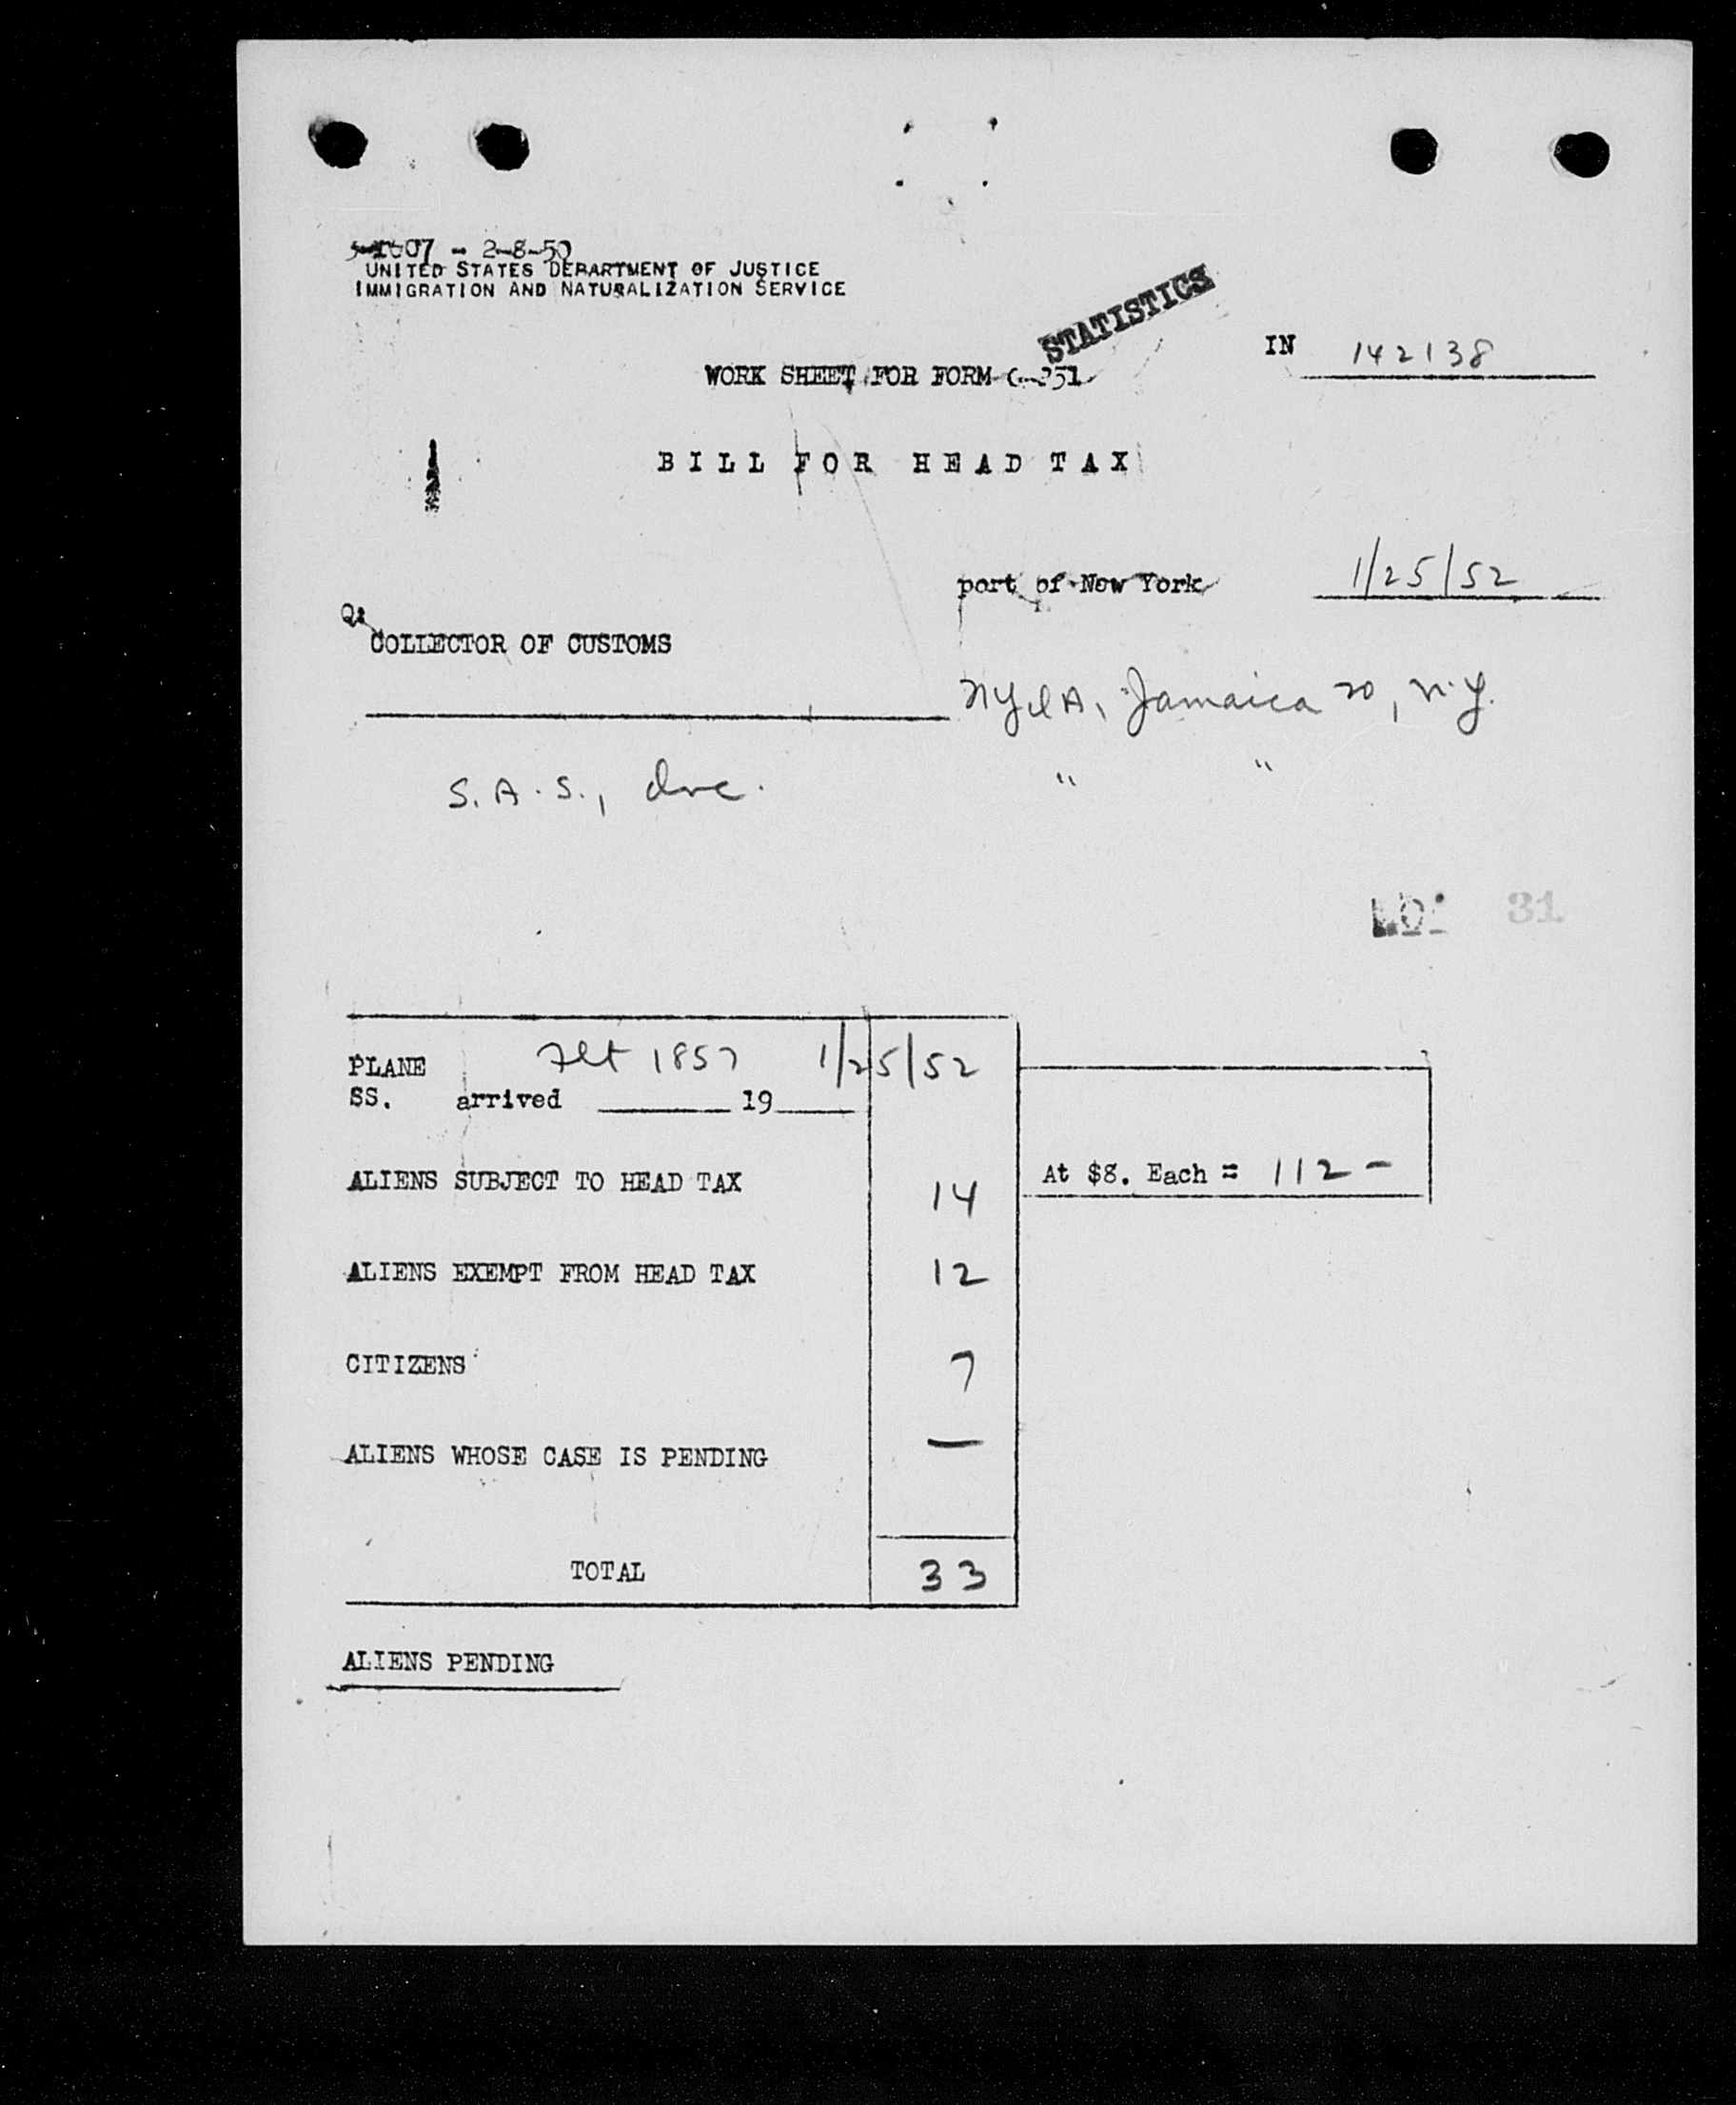 2-8-50
UNITED STATES DEPARTMENT OF JUSTICE
IMMIGRATION AND NATURALIZATION SERVICE
STATISTICS
IN 142138
WORK SHEET FOR FORM
BILL FOR HEAD TAX
port of New York 1/25/52
COLLECTOR OF CUSTOMS
Jamaica 20, N.Y.
S.A.S., Inc. " "
31
PLANE Flt 1857 1/25/52
SS. arrived 19
ALIENS SUBJECT TO HEAD TAX 14 At $8. Each = 112 -
ALIENS EXEMPT FROM HEAD TAX 12
CITIZENS 7
ALIENS WHOSE CASE IS PENDING —
TOTAL 33
ALIENS PENDING